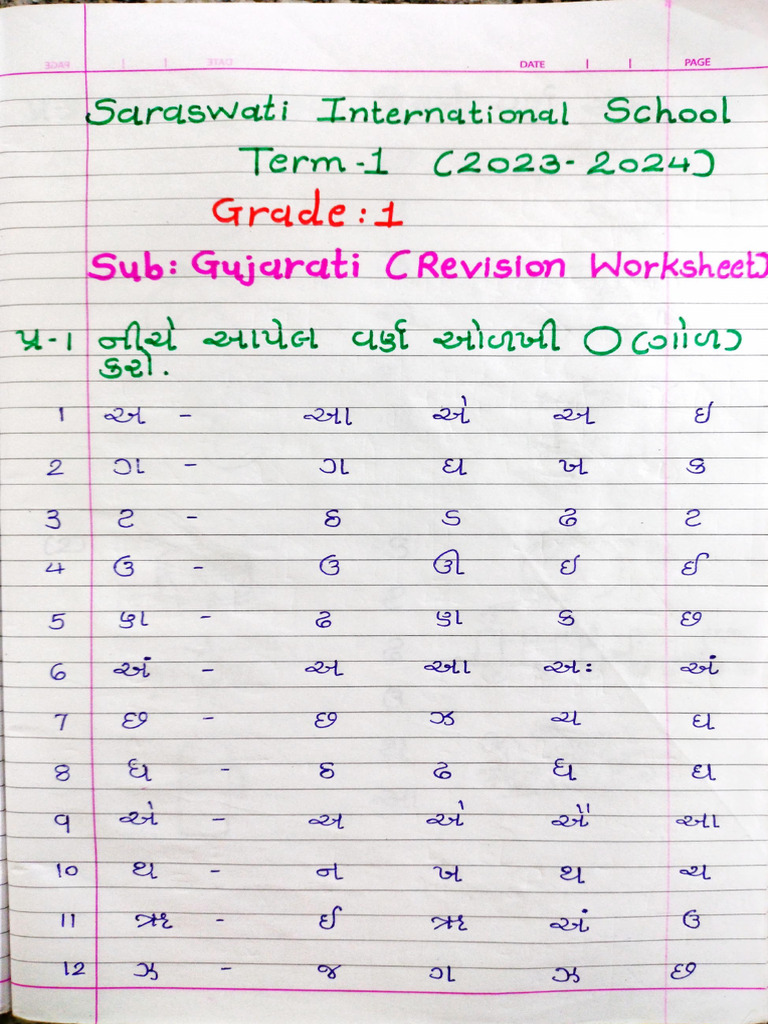 DATE PAGE
Saraswati International School
Term-1 (2023-2024)
Grade: 1
Sub: Gujarati (Revision Worksheet)
પ્ર-૧ નીચે આપેલ વર્ણ ઓળખી ◯ (ગોળ)
કરો.
1 અ - આ એ અ ઇ
2 ગ - ગ ઘ ખ ક
3 ટ - ઠ ડ ઢ ટ
4 ઉ - ઉ ઊ ઇ ઈ
5 ણ - ઢ ણ ક છ
6 અં - અ આ અઃ અં
7 છ - છ ઝ ચ ઘ
8 ધ - ઠ ઢ ધ ઘ
9 એ - અ એ ઐ આ
10 થ - ન ખ થ ચ
11 ઋ - ઈ ઋ અં ઉ
12 ઝ - જ ગ ઝ છ